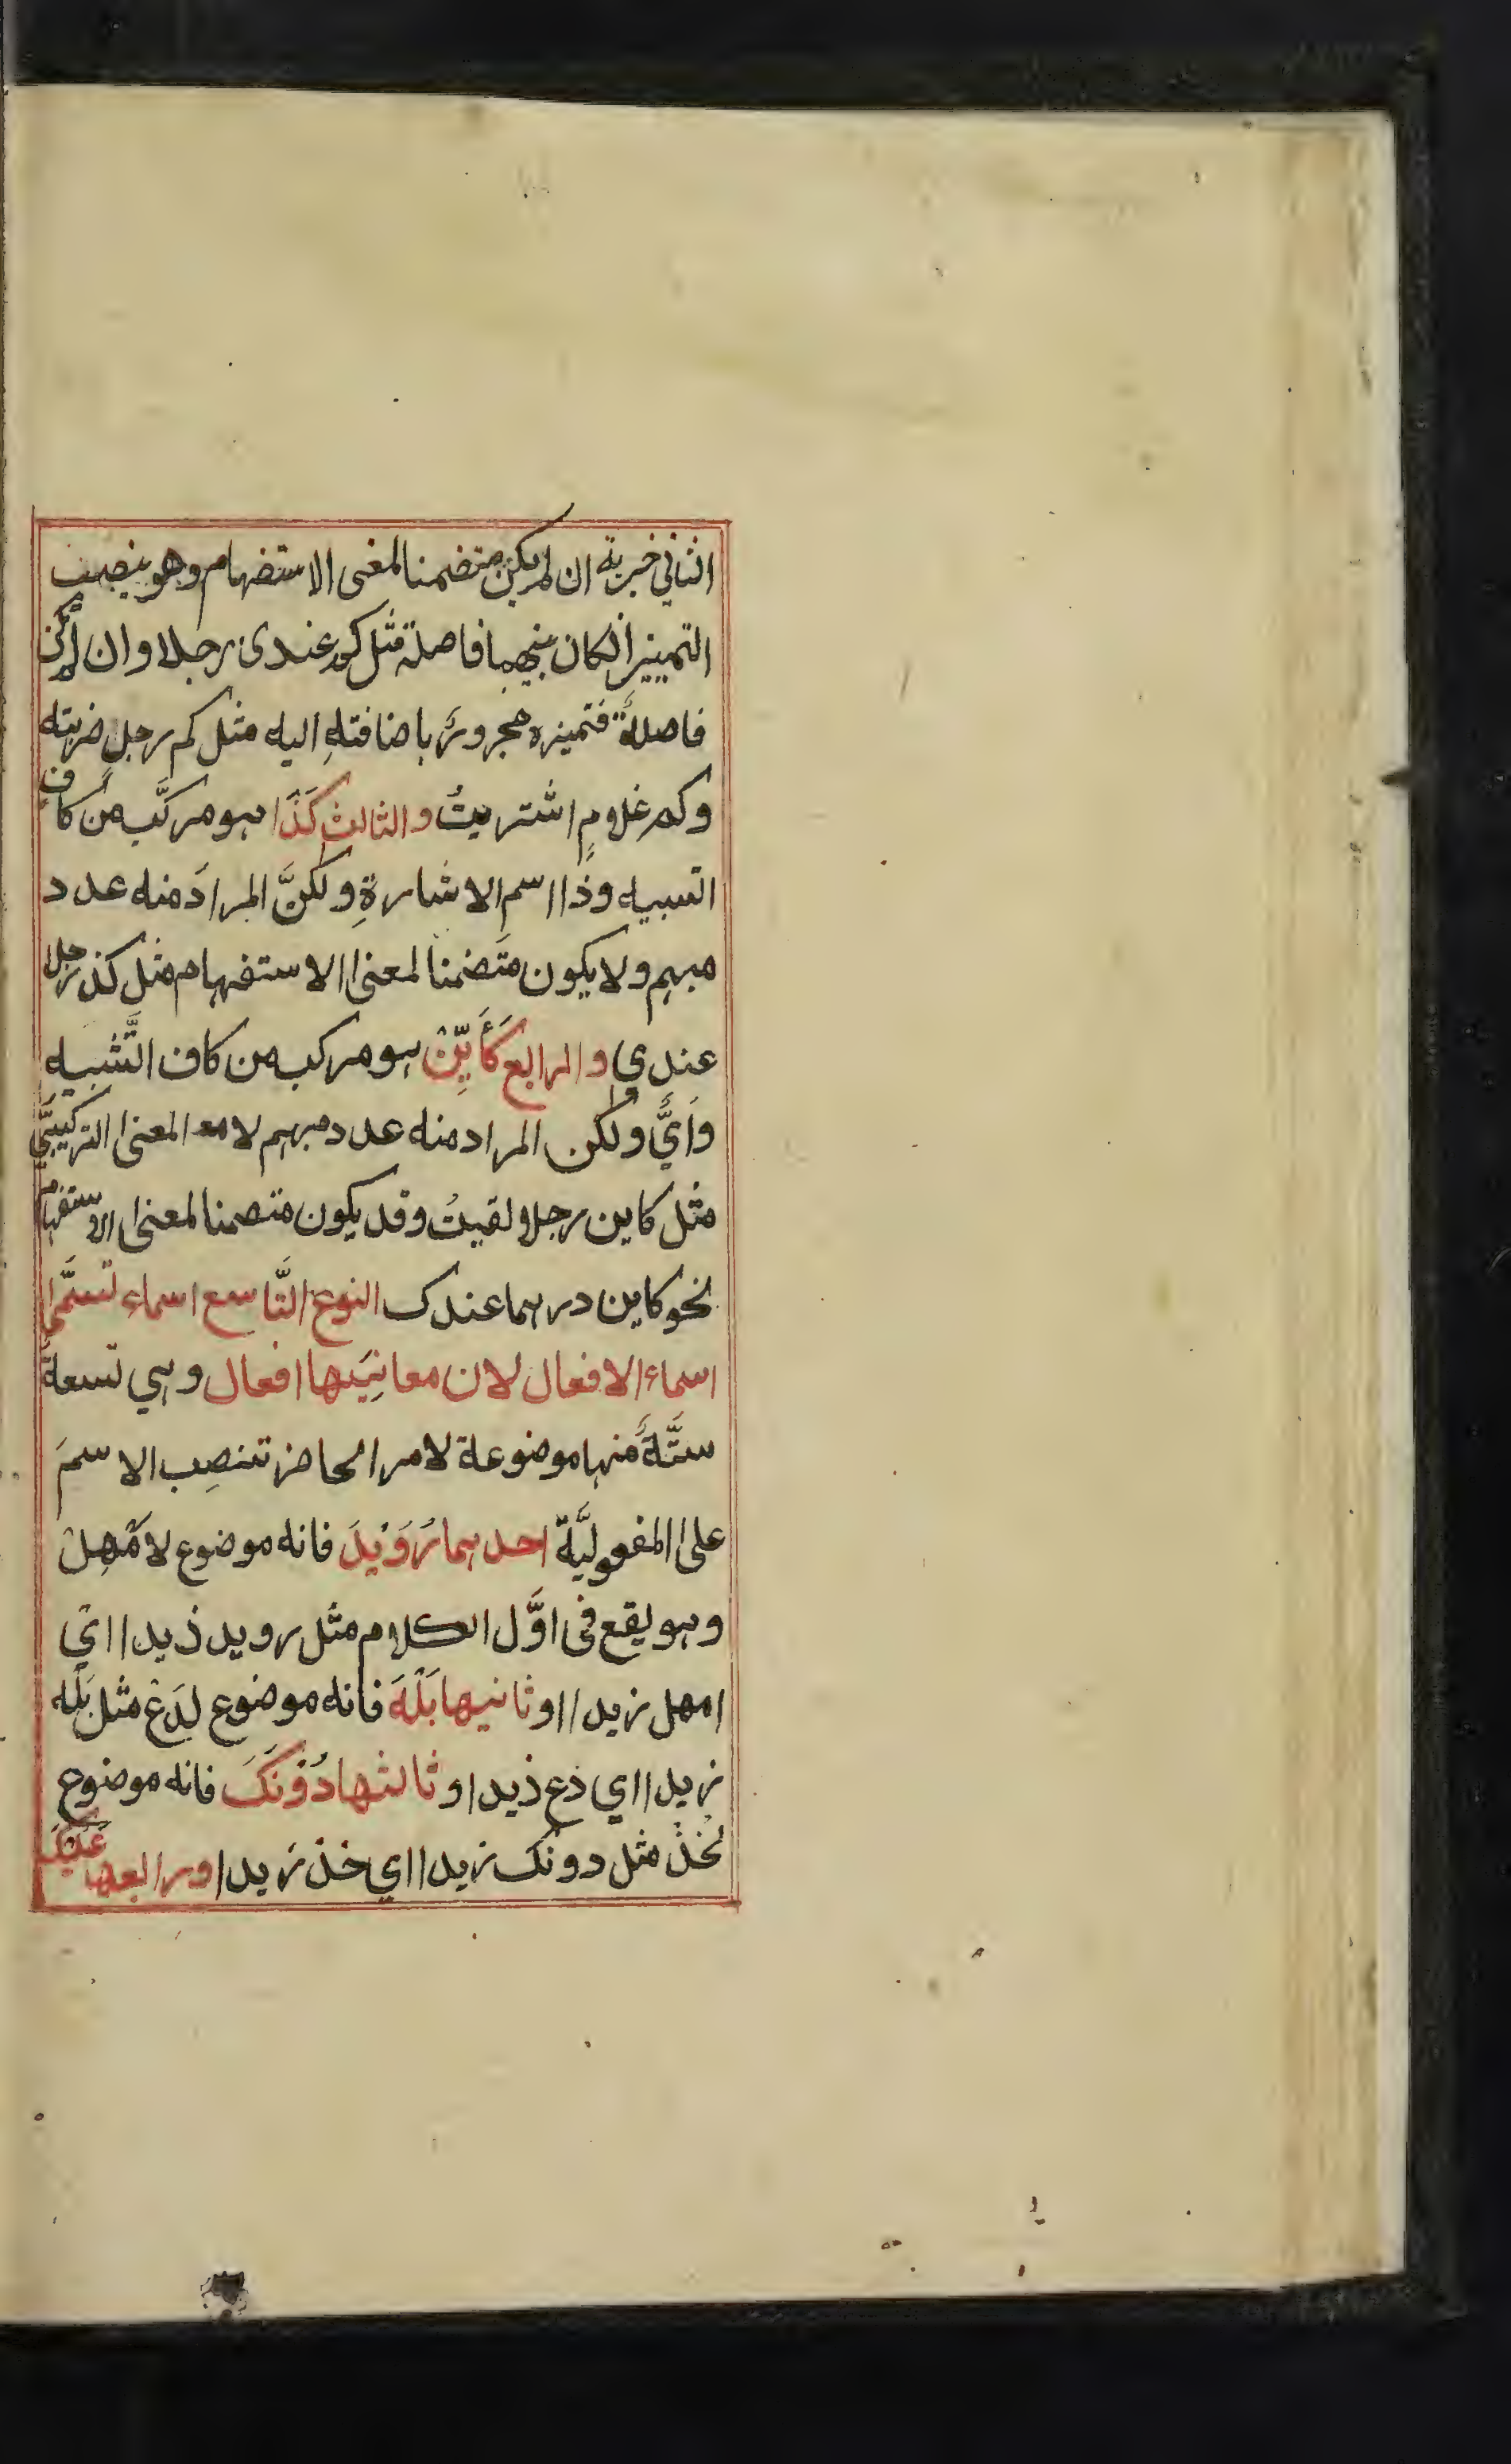 الثاني خبرية ان لم يكن متضمنا لمغنى الاستضهام وهو ينصب
التمييز انكان بينهما فاصلة مثل كم عندى رجلا وان لم يكن
فاصلةٌ فتميزه مجرورٌ باضافتهِ اليه مثل كم رجلٍ ضربته
وكم غلامٍ اشتريتُ والثالث كَذَا هو مركَّب من كاف
التسبيه وذا اسم الاشارةِ ولكنَّ المرادَ منه عدد
مبهم ولا يكون متَضمنا لمعنى الاستفهام مثل كذ رجلا
عندي والرابع كَأَيِّنْ هو مركب من كاف التَّشبيه
وَأيٌّ ولكن المراد منه عدد مبهم لا مع المعنى التركيبيِّ
مثل كاين رجلا لقيتُ وقد يكون متصمنا لمعنى الاستفهام
نحو كاين درهما عندك النوع التَّاسع اسماء تسمَّى
اسماء الافعال لان معانِيَها افعال وهي تسعةٌ
ستَّةٌ منها موضوعة لامر الحاضر تنصِب الاسمَ
على المفعوليَّة احدهما رُوَيْدَ فانه موضوع لامْهِلْ
وهو يقع فى اوَّل الكلام مثل رويد ذيدا اي
امهل زيدا وثانيها بَلْهَ فانه موضوع لدَعْ مثل بَلْه
زيدا اي دَع ذيدا وثالثها دُوْنَكَ فانه موضوع
لخُذْ مثل دونك زيدا اي خذ زَيدا ورابعها عَلَيْكَ